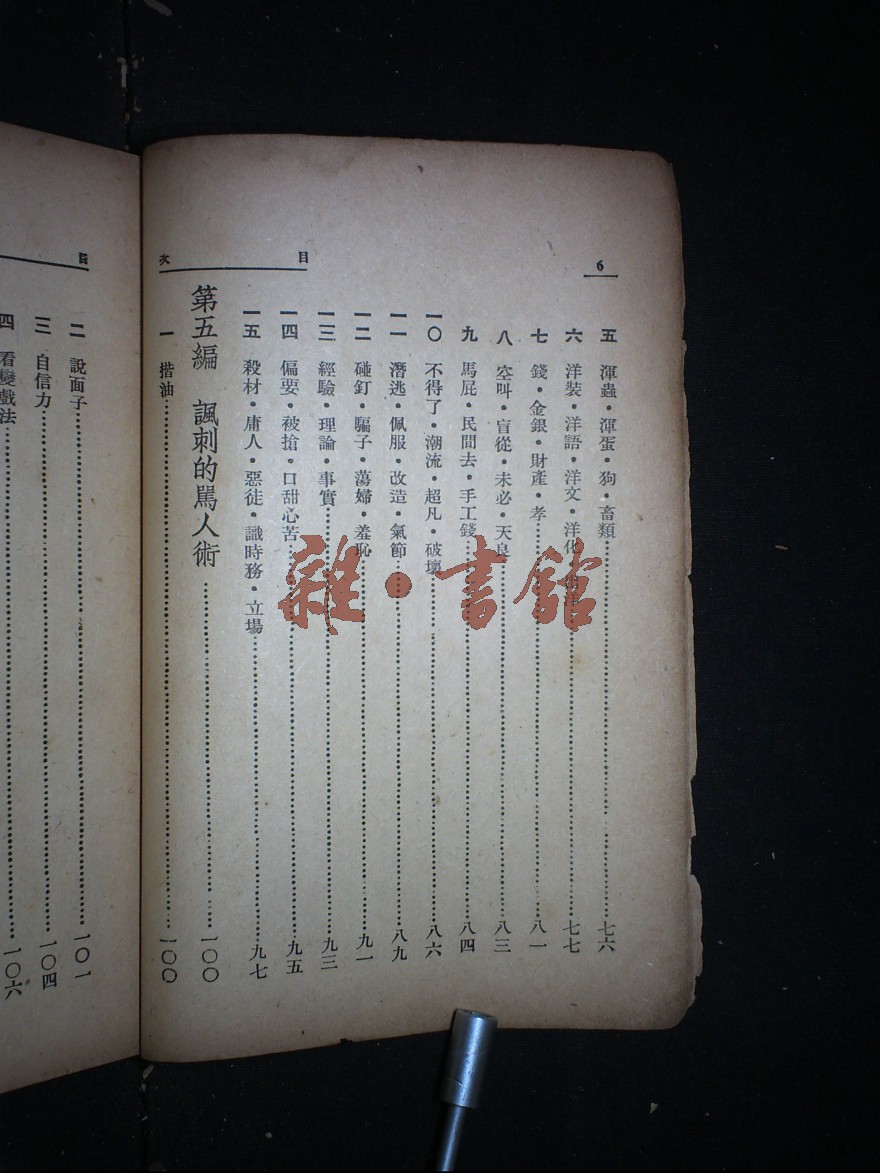 目次
6
五 渾蟲・渾蛋・狗・畜類 七六
六 洋裝・洋語・洋文・洋化 七七
七 錢・金銀・財產・孝 八一
八 空叫・盲從・未必・天良 八三
九 馬屁・民間去・手工錢 八四
一〇 不得了・潮流・超凡・破壞 八六
一一 潛逃・佩服・改造・氣節 八九
一二 碰釘・騙子・蕩婦・羞恥 九一
一三 經驗・理論・事實 九三
一四 偏要・被搶・口甜心苦 九五
一五 殺材・庸人・惡徒・識時務・立場 九七
第五編 諷刺的罵人術 一〇〇
一 揩油 一〇〇
二 說面子 一〇一
三 自信力 一〇四
四 看變戲法 一〇六
雜・書館